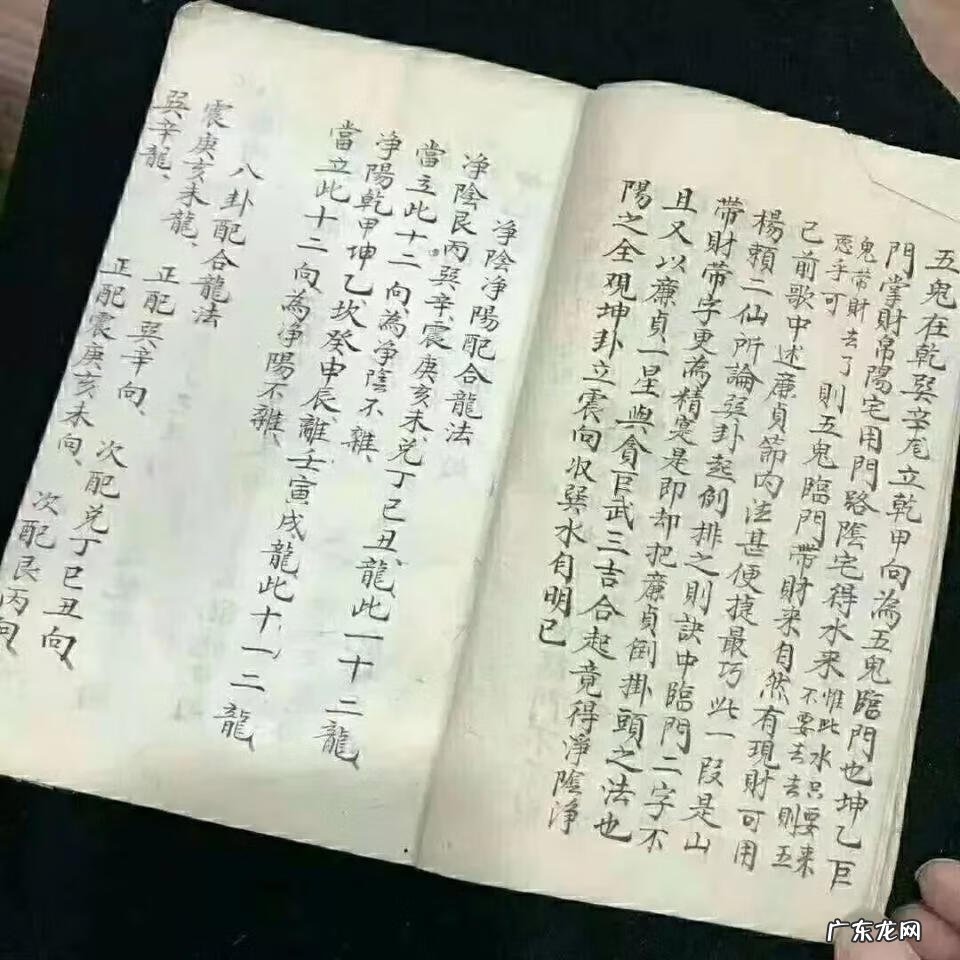 五鬼在乾巽辛尾立乾甲向為五鬼臨門也坤乙巨
門掌財帛陽宅用門路陰宅得水来惟此水只要来不要去去則五
鬼带財去了則五鬼臨門带財来自然有現財可用
悪乎可
已前歌中述廉貞節内注甚便捷最巧此一段是山
楊賴二仙所論巽卦起例排之則訣中臨門二字不
带財带字更為精寔是即却把廉貞倒掛頭之法也
且又以廉貞一星與貪巨武三吉合起竟得淨陰淨
陽之全覌坤卦立震向収巽水自明已
净陰净陽配合龍法
净陰艮丙巽辛震庚亥未兑丁巳丑龍此一十二龍
當立此十二向為净陰不雜
净陽乾甲坤乙坎癸申辰離壬寅戌龍此十一二龍
當立此十二向為净陽不雜
八卦配合龍法
震庚亥未龍、 正配巽辛向、 次配兑丁巳丑向
巽辛龍、 正配震庚亥未向、 次配艮丙向
广东龙网